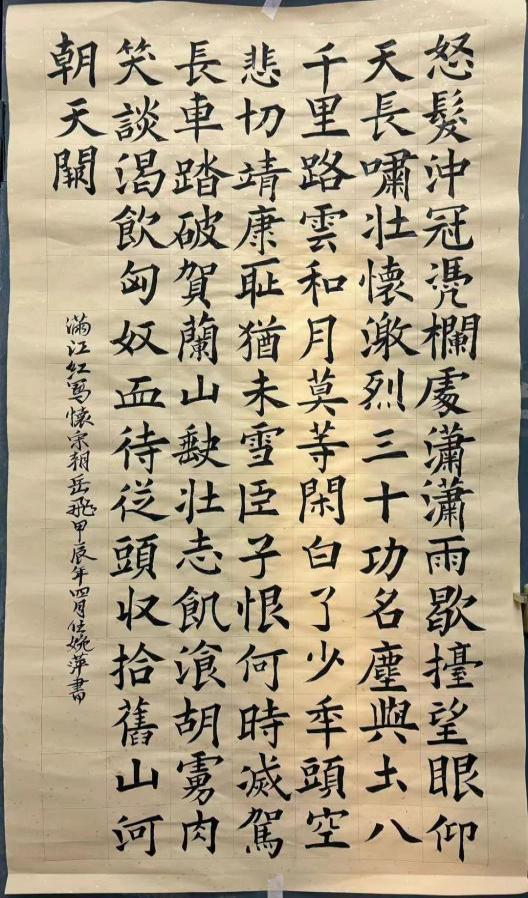 怒髮沖冠凴欄處瀟瀟雨歇擡望眼仰
天長嘯壯懷激烈三十功名塵與土八
千里路雲和月莫等閑白了少年頭空
悲切靖康耻猶未雪臣子恨何時滅駕
長車踏破賀蘭山缺壯志飢飡胡虜肉
笑談渴飲匈奴血待從頭收拾舊山河
朝天闕
滿江紅寫懷宋朝岳飛甲辰年四月婉萍書